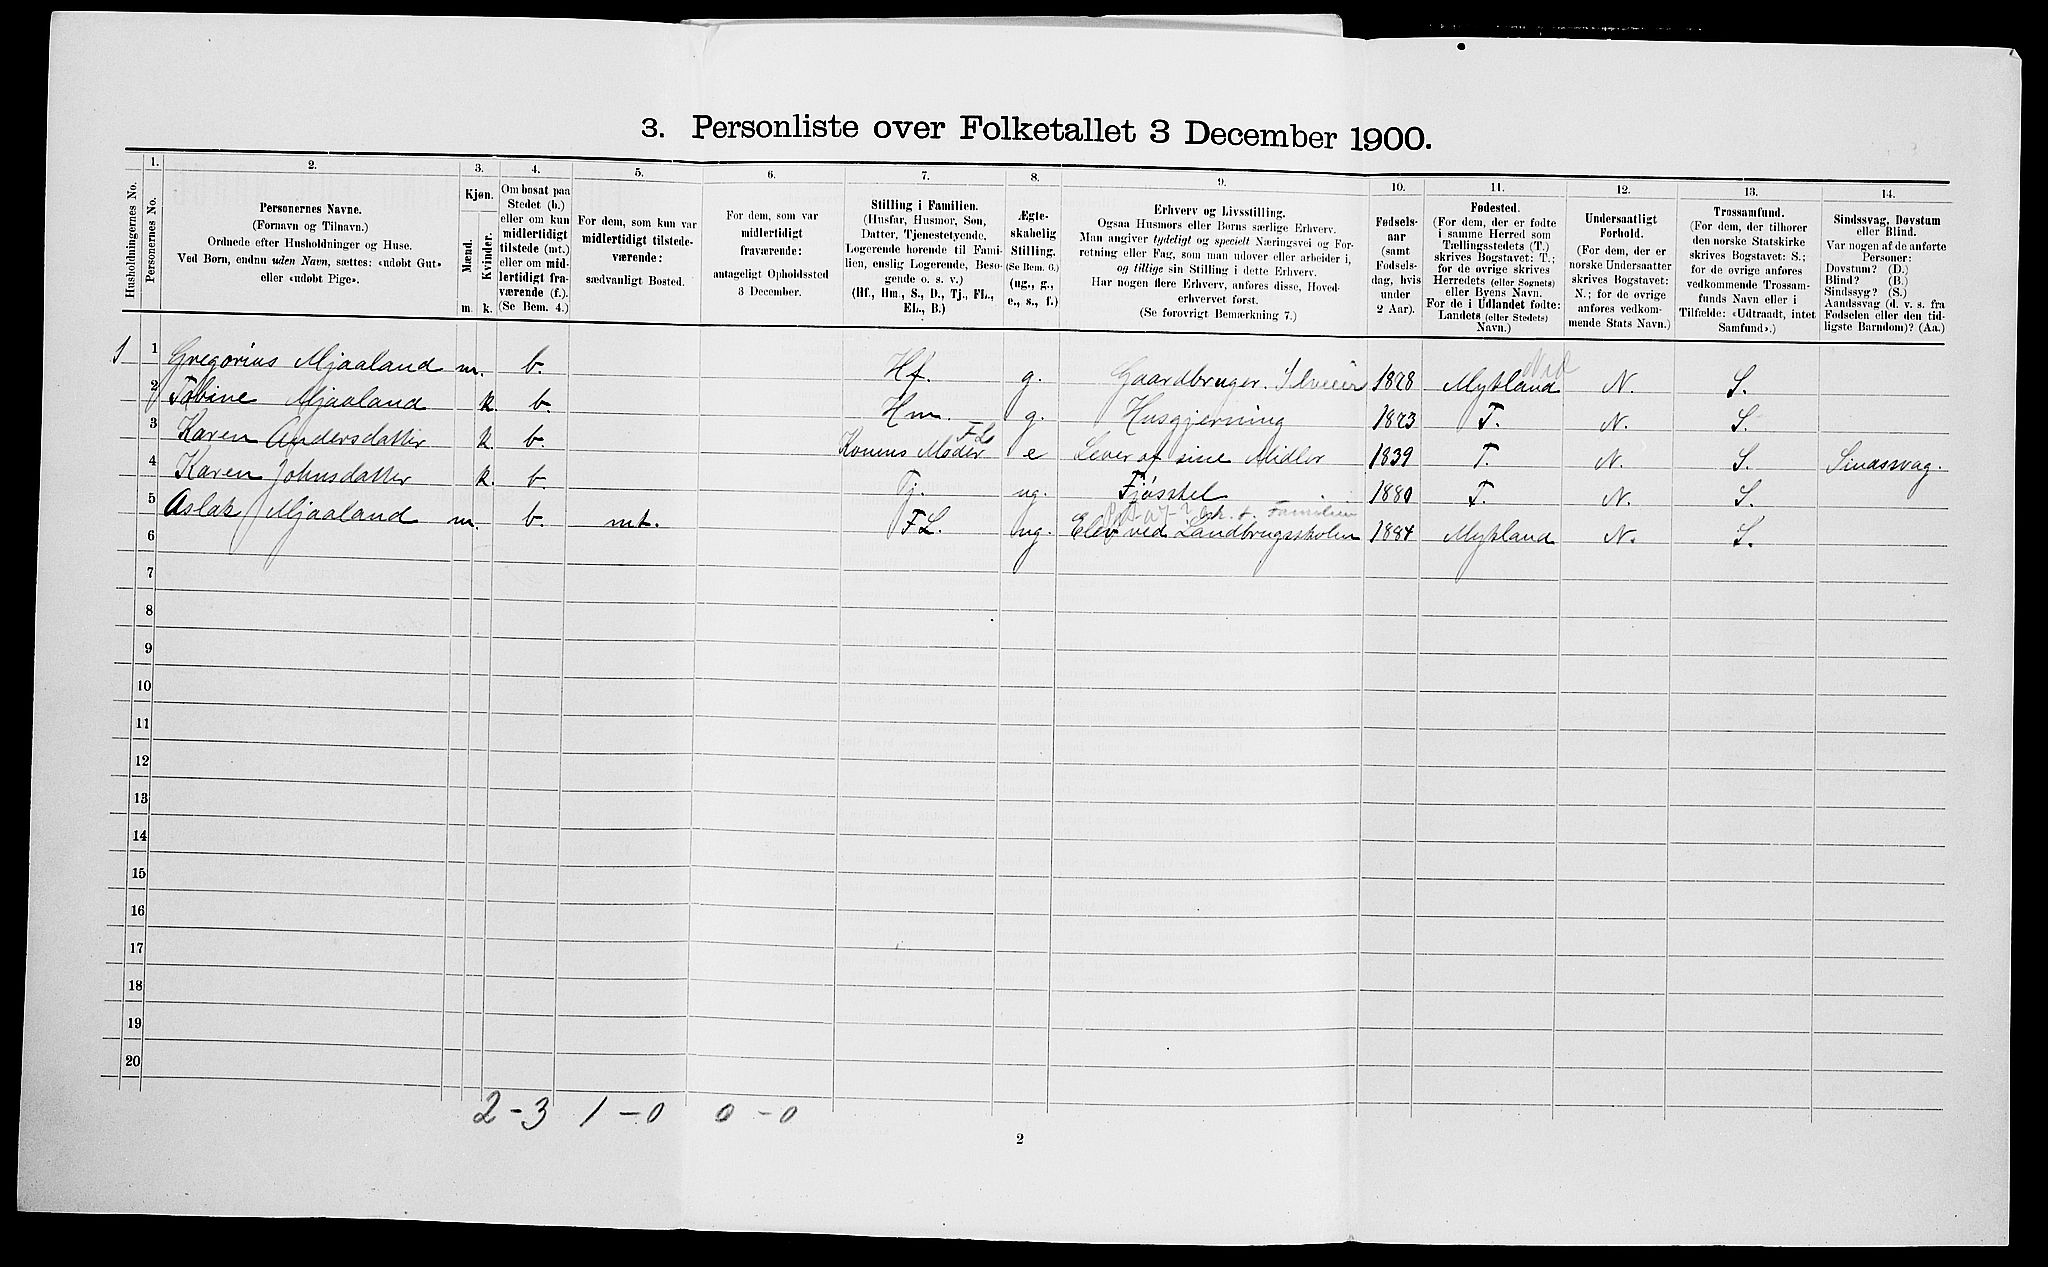 3. Personliste over Folketallet 3 December 1900.
Husholdningernes No.
1.
Personernes No.
2.
Personernes Navne.
(Fornavn og Tilnavn.)
Ordnede efter Husholdninger og Huse.
Ved Børn, endnu uden Navn, sættes: «udøbt Gut»
eller «udøbt Pige».
3.
Kjøn.
Mænd.
Kvinder.
m. k.
4.
Om bosat paa
Stedet (b.)
eller om kun
midlertidigt
tilstede (mt.)
eller om mid-
lertidigt fra-
værende (f.).
(Se Bem. 4.)
5.
For dem, som kun var
midlertidigt tilstede-
værende:
sædvanligt Bosted.
6.
For dem, som var
midlertidigt
fraværende:
antageligt Opholdssted
3 December.
7.
Stilling i Familien.
(Husfar, Husmor, Søn,
Datter, Tjenestetyende,
Logerende hørende til Fami-
lien, enslig Logerende, Besø-
gende o. s. v.)
(Hf., Hm., S., D., Tj., FL.,
EL., B.)
8.
Ægte-
skabelig
Stilling.
(Se Bem. 6.)
(ug., g.,
e., s., f.)
9.
Erhverv og Livsstilling.
Ogsaa Husmors eller Børns særlige Erhverv.
Man angiver tydeligt og specielt Næringsvei og For-
retning eller Fag, som man udøver eller arbeider i,
og tillige sin Stilling i dette Erhverv.
Har nogen flere Erhverv, anføres disse, Hoved-
erhvervet først.
(Se forøvrigt Bemærkning 7.)
10.
Fødsels-
aar
(samt
Fødsels-
dag, hvis
under
2 Aar).
11.
Fødested.
(For dem, der er fødte
i samme Herred som
Tællingsstedets (T.)
skrives Bogstavet: T.;
for de øvrige skrives
Herredets (eller Sognets)
eller Byens Navn.
For de i Udlandet fødte:
Landets (eller Stedets)
Navn.)
12.
Undersaatligt
Forhold.
(For dem, der er
norske Undersaatter
skrives Bogstavet:
N.; for de øvrige
anføres vedkom-
mende Stats Navn.)
13.
Trossamfund.
(For dem, der tilhører
den norske Statskirke
skrives Bogstavet: S.;
for de øvrige anføres
vedkommende Trossam-
funds Navn eller i
Tilfælde: «Udtraadt, intet
Samfund».)
14.
Sindssvag, Døvstum
eller Blind.
Var nogen af de anførte
Personer:
Døvstum? (D.)
Blind? (B.)
Sindssyg? (S.)
Aandssvag (d. v. s. fra
Fødselen eller den tid-
ligste Barndom)? (Aa.)
1 1 Gregorius Mjaaland m. b. Hf. g. Gaardbruger. Selveier 1878 Mykland N. S.
2 Tobine Mjaaland k. b. Hm. g. Husgjerning 1873 T. N. S.
3 Karen Andersdatter k. b. Konens Moder FL e Lever af sine Midler 1839 T. N. S. Sindssvag.
4 Karen Johnsdatter k. b. Tj. ug. Fjøsstel 1880 T. N. S.
5 Aslak Mjaaland m. b. mt. FL. ug. Elev ved Landbrugsskolen 1884 Mykland N. S.
6
7
8
9
10
11
12
13
14
15
16
17
18
19
20
2 - 3 1 - 0 0 - 0
2